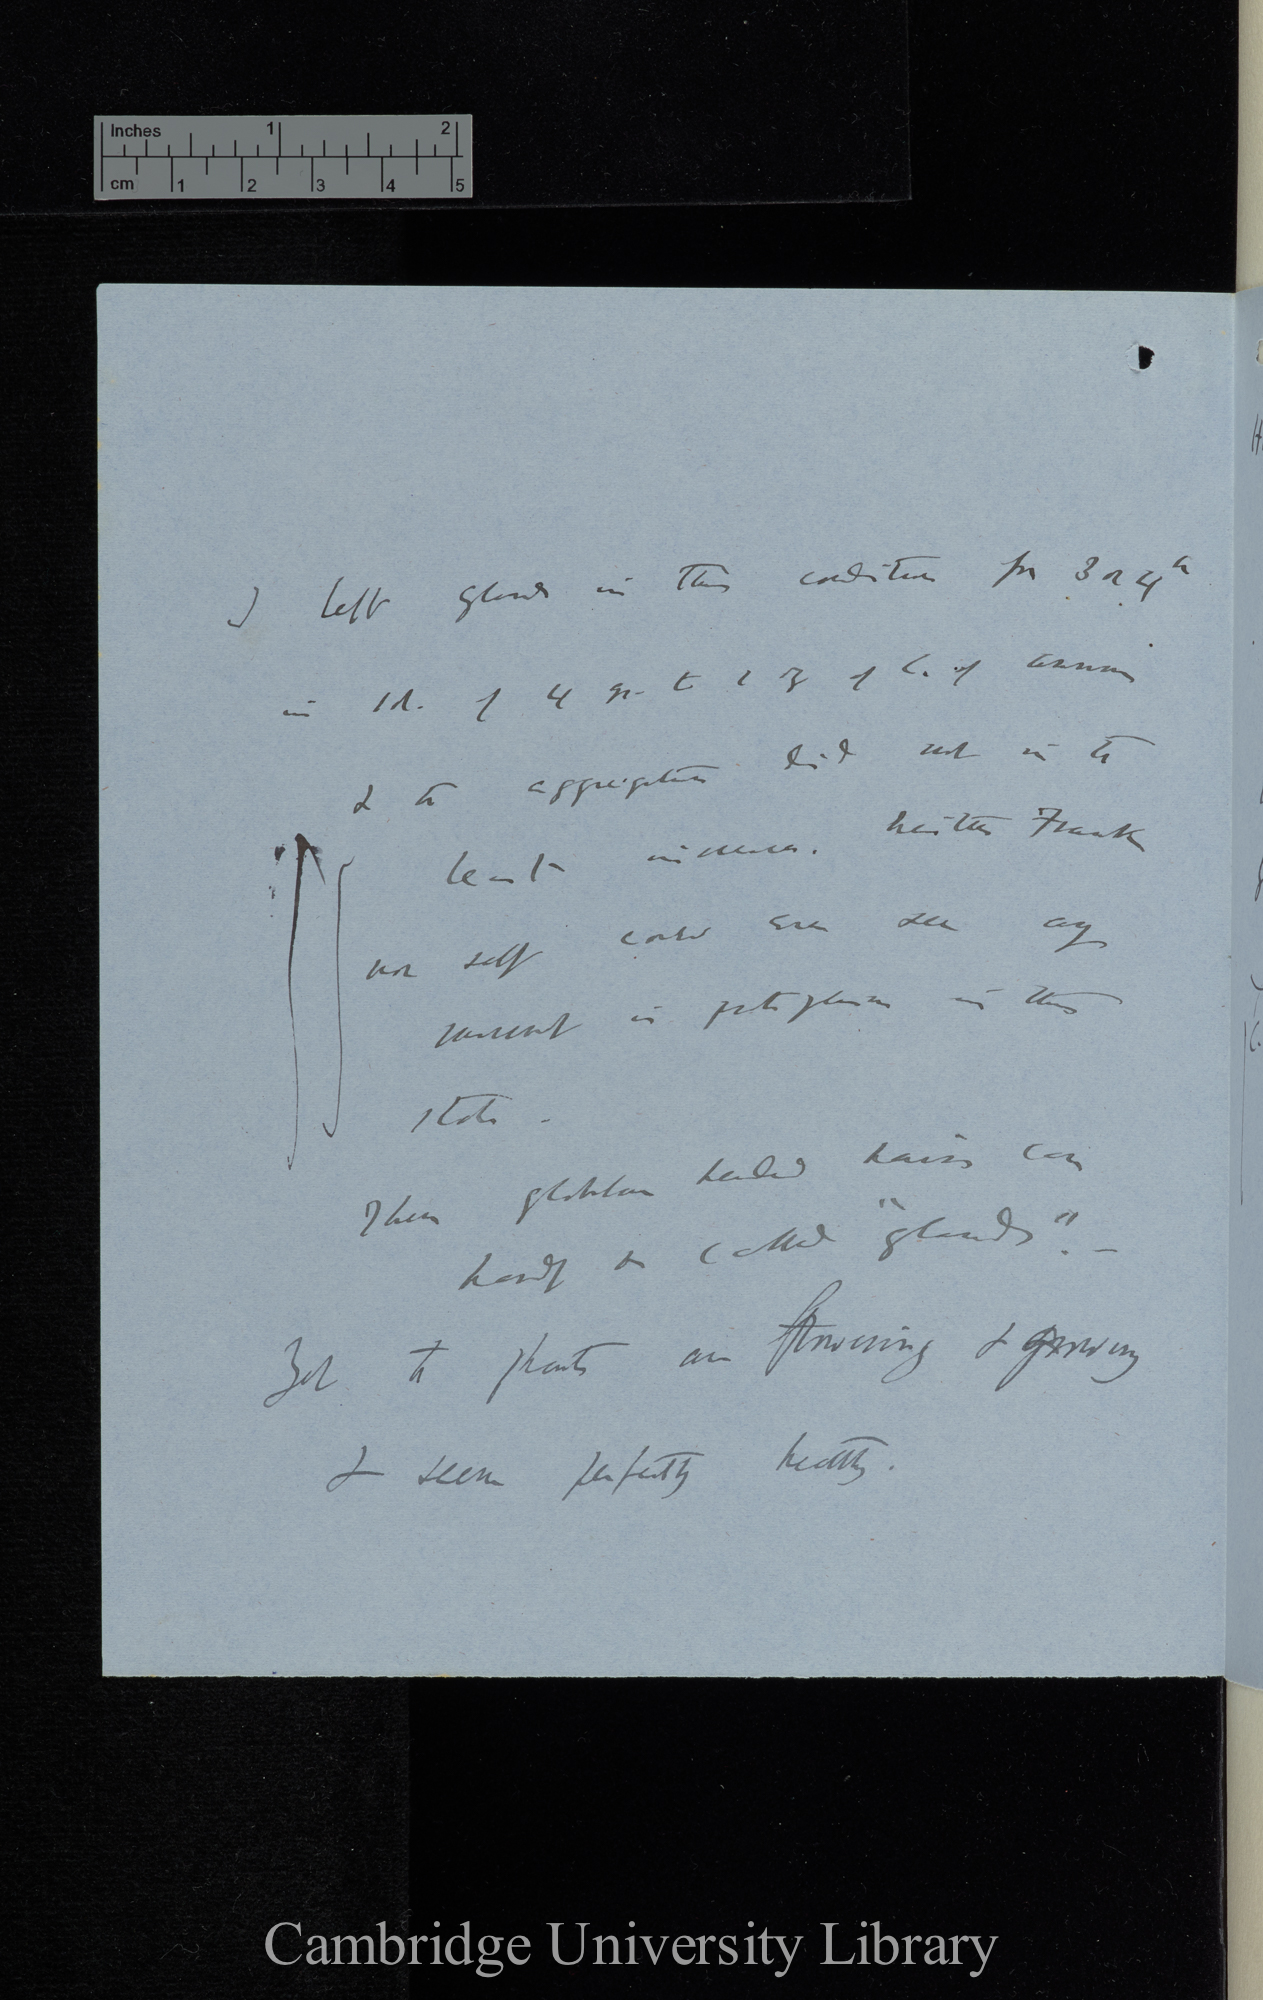 Inches 1 2
cm 1 2 3 4 5
I left glands in this condition for 3 or 4h
in sol. of 4 gr. to 1 oz of C. of ammonia
& the aggregation did not in the
least increase. Neither Frank
nor self could even see any
movement in protoplasm in this
state.
These globular headed hairs can
hardly be called "glands". —
Yet the plants are flowering & growing
& seem perfectly healthy.
Cambridge University Library